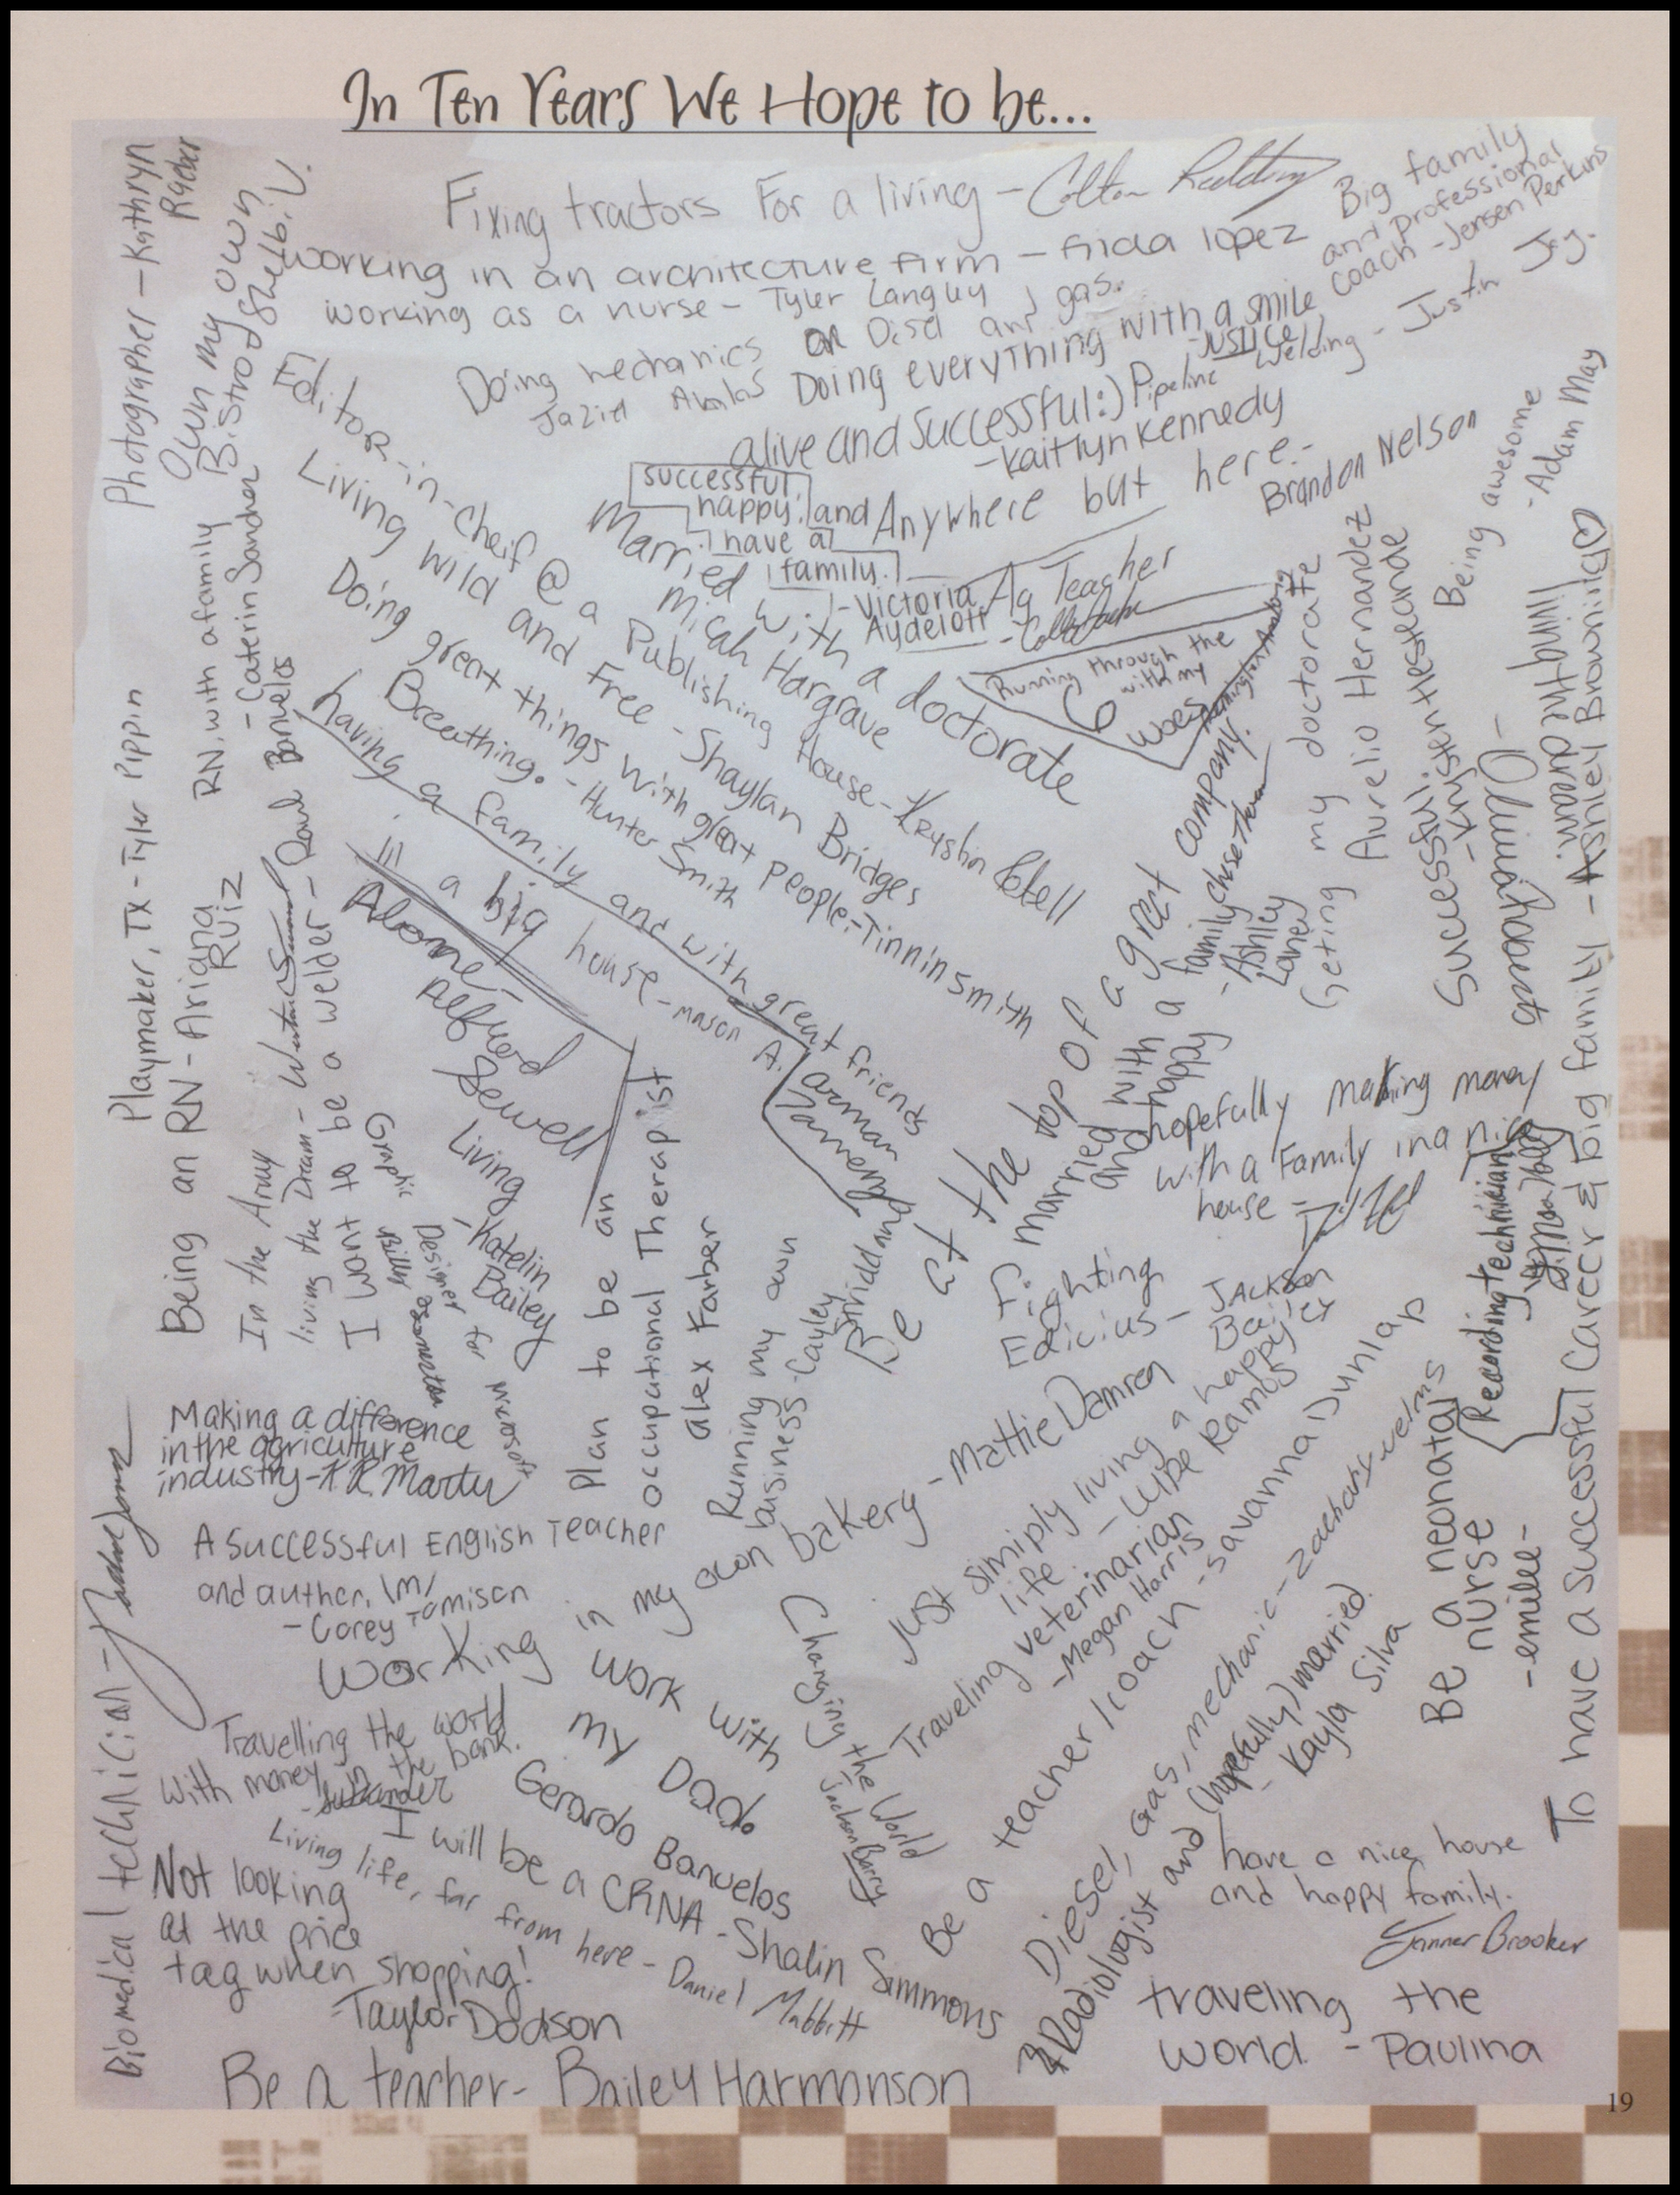 In Ten Years We Hope to be...
Fixing tractors For a living - Colton Redding
Big family
and professional
coach - Jensen Perkins
working in an architecture firm - frida lopez
working as a nurse - Tyler Langley
Doing mechanics on Disel and gas.
Jaziel Avalos
Doing everything with a smile
- JUSTICE
Pipeline welding - Justin Jay.
alive and successful :)
- Kaitlyn Kennedy
Photographer - Kathryn
Rader
Own my own
Bistro Shelbi V.
Editor-in-cheif @ a Publishing House - Krystin
Living wild and free - Shaylan Bridges
Married with a doctorate
Micah Hargrave
successful
happy and
have a
family.
- Victoria
Aydelott
Anywhere but here -
Brandon Nelson
Ag Teacher
Being awesome
- Adam May
Running through the
6 with my
woes
Doing great things with great people - Tinnin Smith
Breathing. - Hunter Smith
having a family and with great friends
in a big house - mason A.
Alone -
Alfred
Sewell
RN, with a family
- Caterin Sandher
Playmaker, TX - Tyler Pippin
Being an RN - Ariana
Ruiz
In the Army
living the Dream -
I want to be a welder - Raul Banuelos
Graphic
Designer for
microsoft
Living
- Katelin
Bailey
Plan to be an
occupational Therapist
alex Farber
Running my own
business - Cayley
Be at the top of a great company.
married with a family
and happy
- Ashley
Laney
Geting my doctorate
Aurelio Hernandez
Successful
living my dream!
To have a successful Career & big family - Ashley Browning ♡
hopefully making money
with a Family in a nice
house -
Recording technician
Fighting
Edicius - JACKSON
Making a difference
in the agriculture
industry - K.R. Martin
A Successful English Teacher
and author, \m/
- Corey Jamison
Working in my own bakery - Mattie Damren
Just simiply living a happy
life. - Lupe Ramos
Traveling veterinarian
- Megan Harris
Be a teacher / coach - Savanna Dunlap
Diesel, Gas, mechanic - zachary welms
Radiologist and (hopefully) married.
- Kayla Silva
Be a neonatal
nurse
- emilee -
Biomedical technician -
Travelling the world
with money in the bank.
Work with
my Dad.
Gerardo Banuelos
Changing the World
Jackson Barry
I will be a CRNA - Shalin Simmons
Living life, far from here - Daniel Mabbitt
Not looking
at the price
tag when shopping!
- Taylor Dodson
Be a teacher - Bailey Harmonson
have a nice house
and happy family.
Tanner Brooker
traveling the
world. - Paulina
19